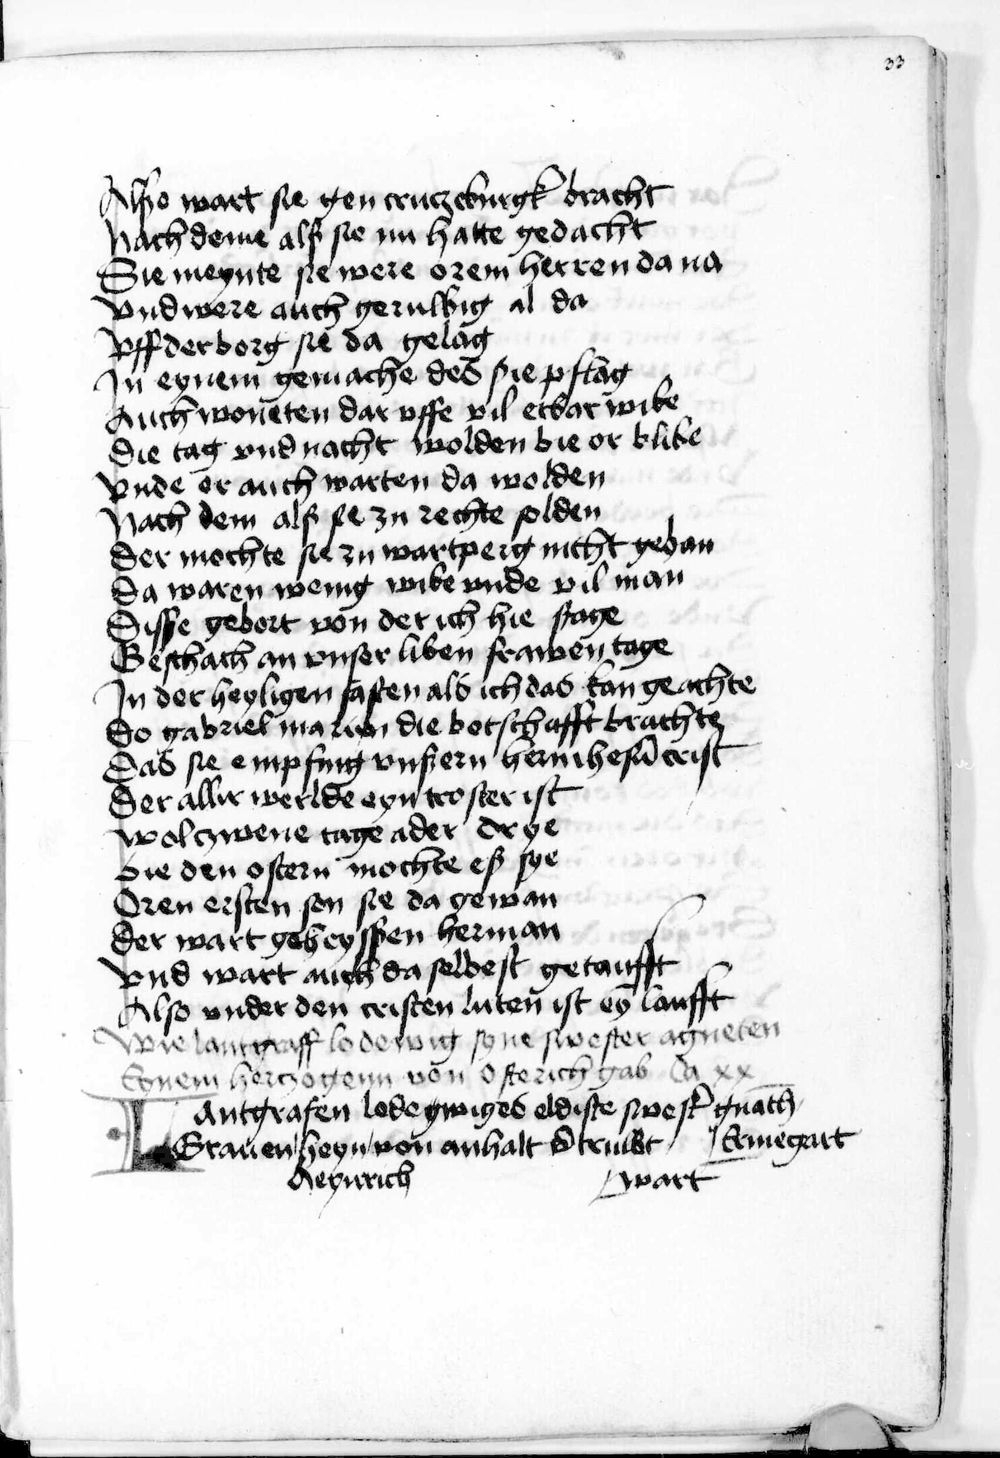 33
Alßo wart sie gen cruczeburgk bracht
Nach deme alß sie nu hatte gedacht
Sie meynte sie were orem herren da na
vnd were auch gerulbig al da
vff der borg sie da gelag
In eynem gemache des sie pflag
Auch woneten dar vffe vil erbar wibe
die tag vnd nacht wolden bie or blibe
vnde or auch warten da wolden
Nach dem alß sie zu rechte solden
der mochte sie zu wartperg nicht gehan
da waren wenig wibe vnde vil man
Disse gebort von der ich hie sage
Geschach an vnser liben frawen tage
In der heyligen fasten als ich das kan geachte
do gabriel marien die botschafft brachte
das sie empfing vnßern hern ihesu crist
der allir werlde eyn troster ist
wol czwene tage ader drye
vie den ostern mochte eß sye
Oren ersten son sie da gewan
der wart geheyssen herman
vnd wart auch da selbest getaufft
Also vnder den cristen luten ist ey laufft
Wie lantgraff lodewig syne swester agneten
Eynem herczogenn von Osterich gab Ca xx
Lantgrafen lodegwiges eldiste swest' gnath
Grauen heyn von anhalt vtruwt Ermegart
Heynrich wart